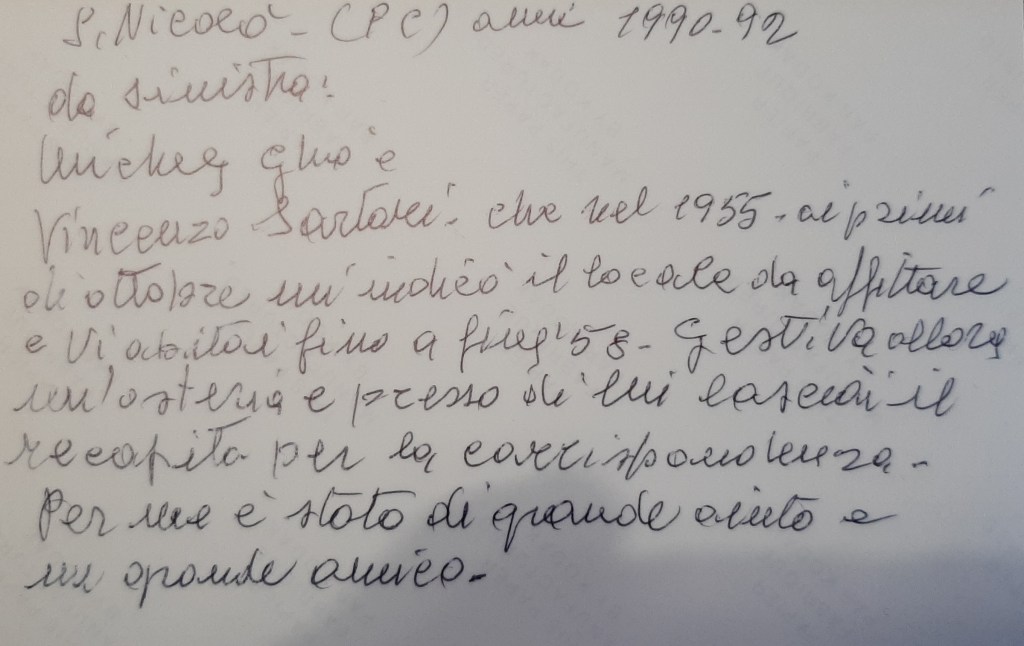 S. Nicolò - (PC) anni 1990-92
da sinistra:
Mickey Gho e
Vincenzo Sartori. che nel 1955 - ai primi
di ottobre m'indicò il locale da affittare
e vi abitai fino a fine '58 - Gestiva allora
un'osteria e presso di lui lasciai il
recapito per la corrispondenza -
Per me è stato di grande aiuto e
un grande amico -